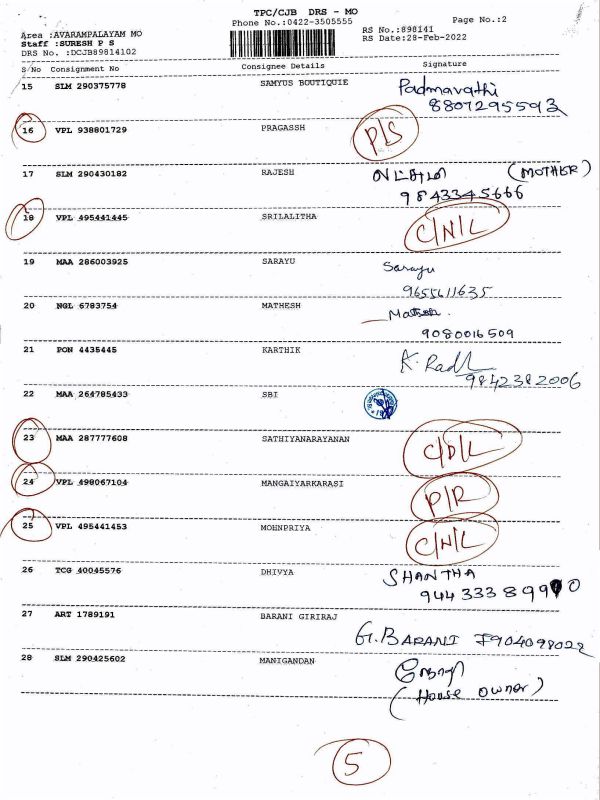 TPC/CJB DRS - MO
Phone No.:0422-3505555
Page No.:2
Area :AVARAMPALAYAM MO
Staff :SURESH P S
DRS No. :DCJB89814102
RS No.:898141
RS Date:28-Feb-2022
S/No Consignment No Consignee Details Signature
15 SLM 290375778 SAMYUS BOUTIQUIE Padmavathi
8807295593
16 VPL 938801729 PRAGASSH P/S
17 SLM 290430182 RAJESH (MOTHER)
9843345666
18 VPL 495441445 SRILALITHA C/N/L
19 MAA 286003925 SARAYU Sarayu
9655611635
20 NGL 6783754 MATHESH Mathesh.
9080016509
21 PON 4435445 KARTHIK
9842382006
22 MAA 264785433 SBI
23 MAA 287777608 SATHIYANARAYANAN C/D/L
24 VPL 498067104 MANGAIYARKARASI P/R
25 VPL 495441453 MOHNPRIYA C/N/L
26 TCG 40045576 DHIVYA SHANTHA
27 ART 1789191 BARANI GIRIRAJ
G.BARANI 7904098022
28 SLM 290425602 MANIGANDAN
(House owner)
5